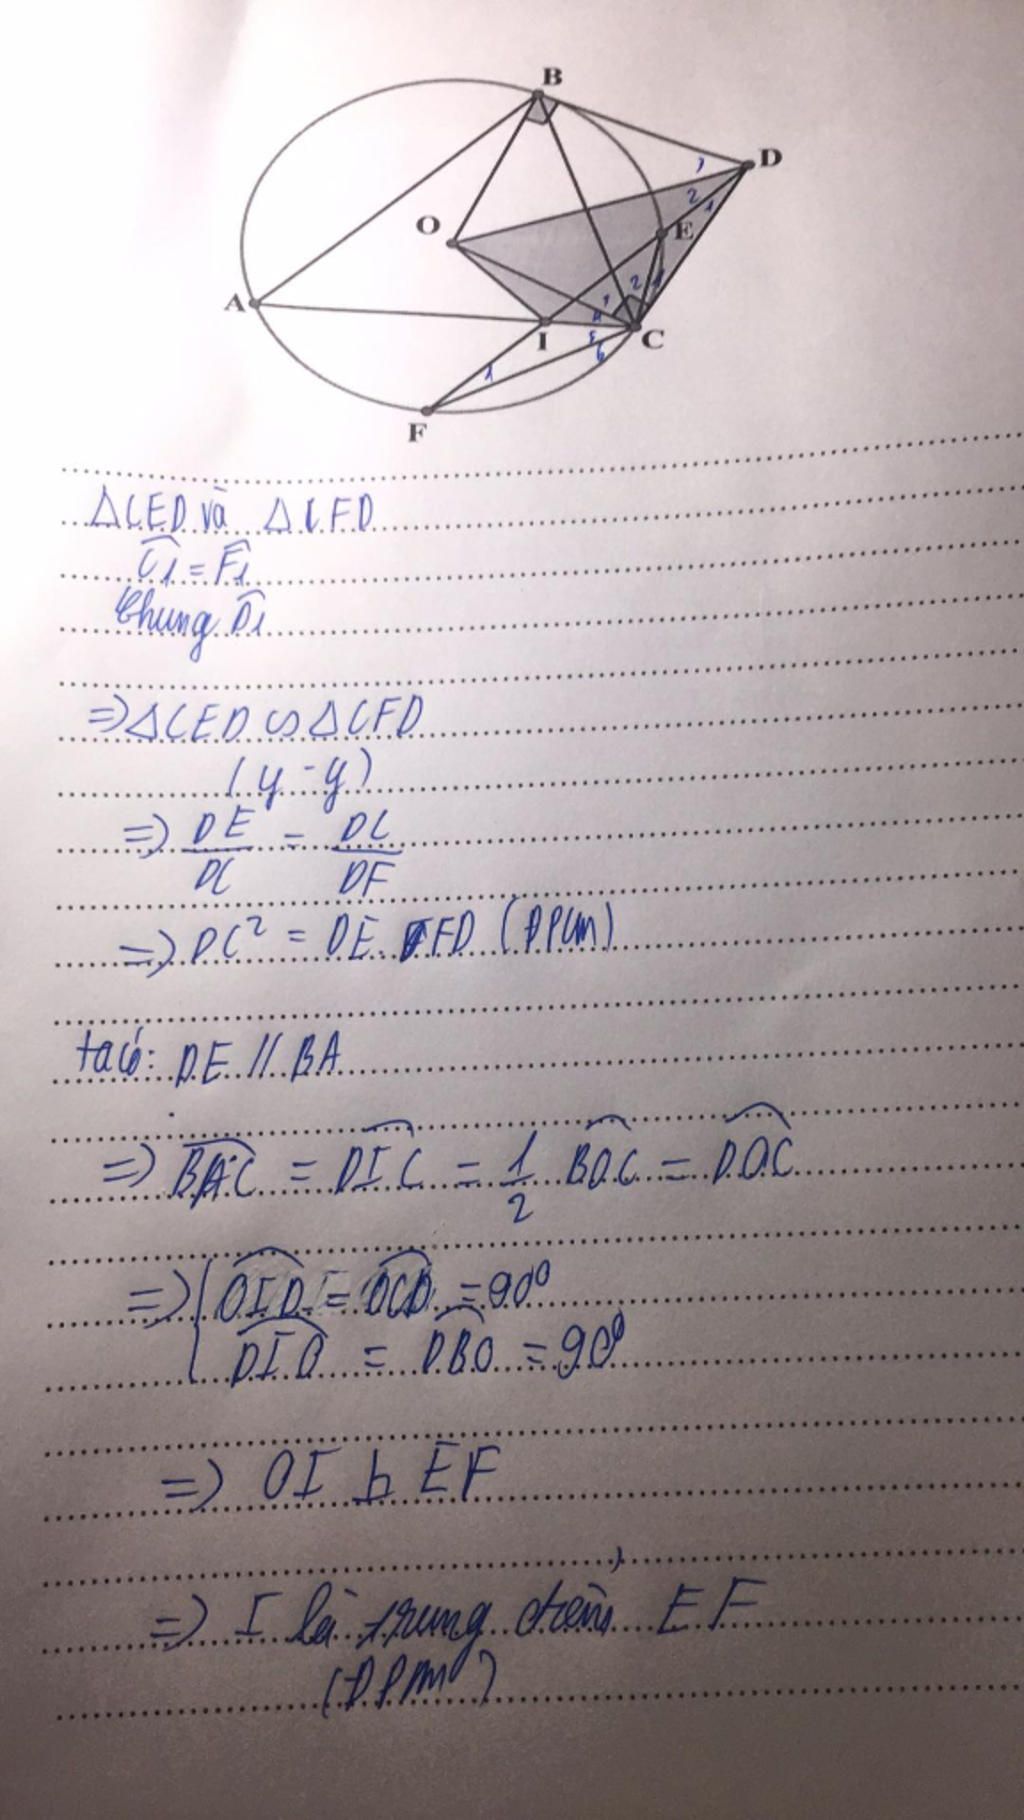 B
D
O
E
A
I
C
F
ΔCED và ΔCFD
Ĉ1 = F̂1
Chung D̂1
=> ΔCED ∽ ΔCFD
(y - y)
=> DE/DC = DC/DF
=> DC² = DE . FD (ĐPCM)
ta có: DE // BA
=> BAC = DIC = 1/2 BOC = DOC
=> { OID = OCD = 90°
DIO = DBO = 90°
=> OI ⊥ EF
=> I là trung điểm EF
(ĐPCM)